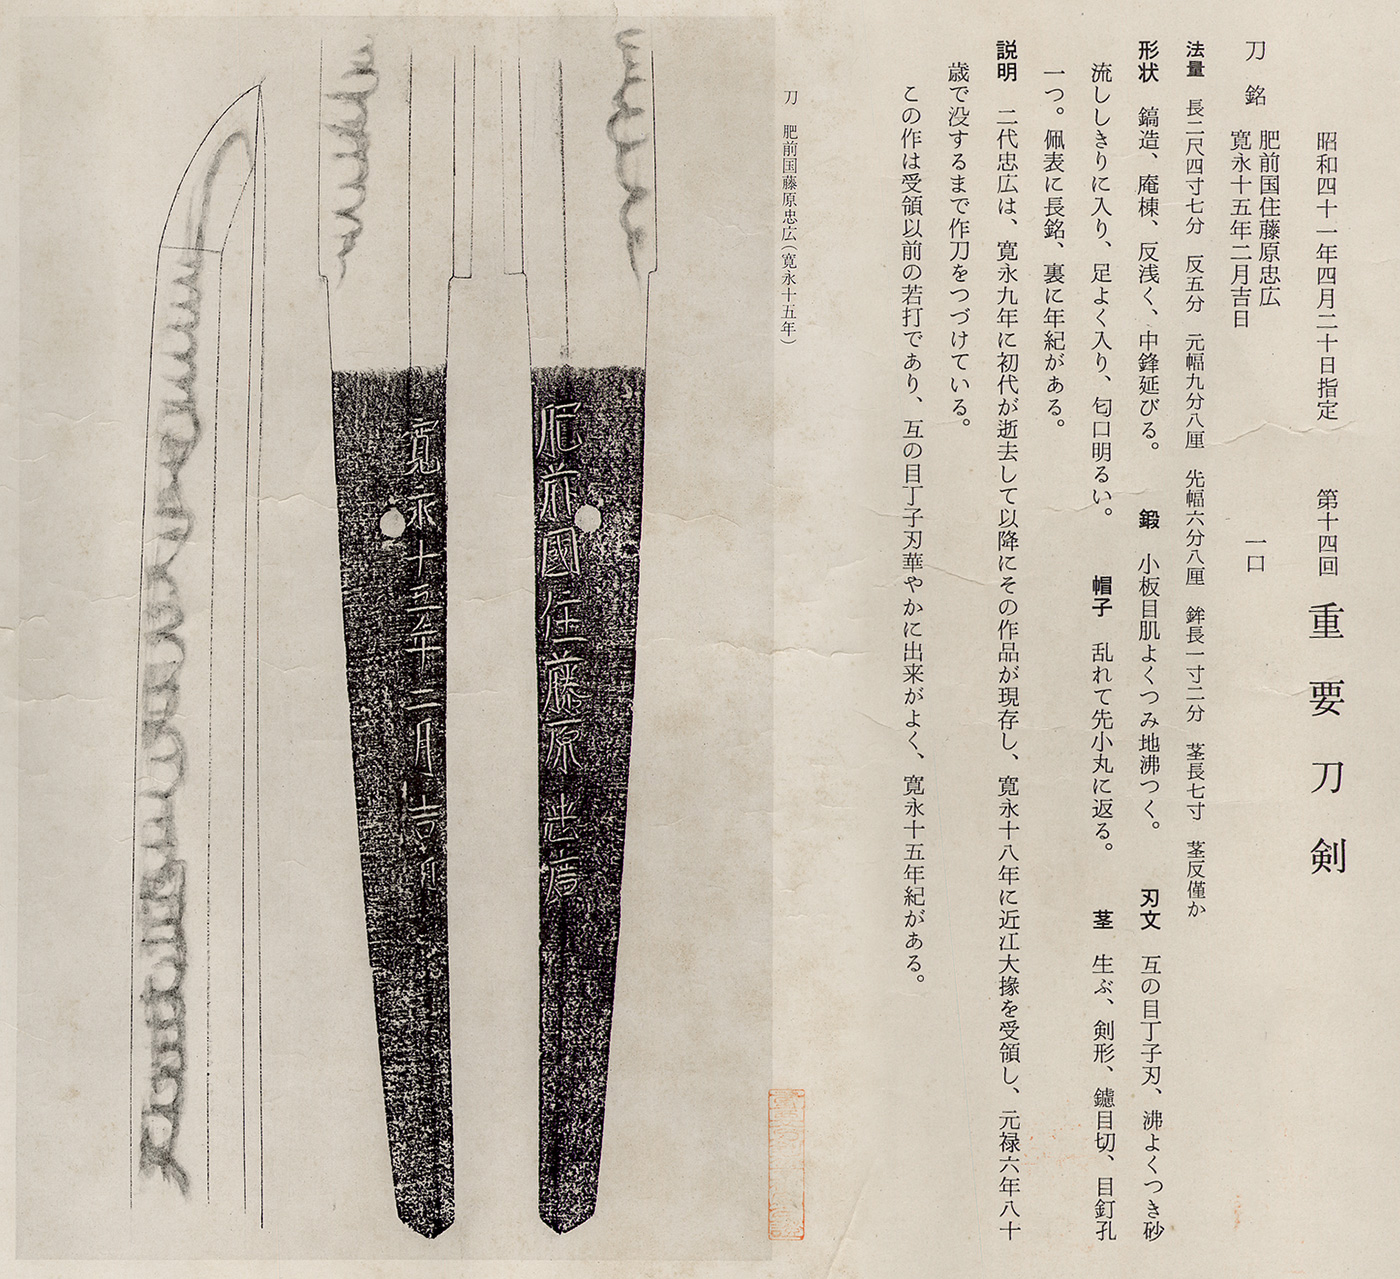 昭和四十一年四月二十日指定　第十四回　重要刀剣
刀　銘　肥前国住藤原忠広　一口
寛永十五年二月吉日
法量　長二尺四寸七分　反五分　元幅九分八厘　先幅六分八厘　鋒長一寸二分　茎長七寸　茎反僅か
形状　鎬造、庵棟、反浅く、中鋒延びる。　鍛　小板目肌よくつみ地沸つく。　刃文　互の目丁子刃、沸よくつき砂
流ししきりに入り、足よく入り、匂口明るい。　帽子　乱れて先小丸に返る。　茎　生ぶ、剣形、鑢目切、目釘孔
一つ。佩表に長銘、裏に年紀がある。
説明　二代忠広は、寛永九年に初代が逝去して以降にその作品が現存し、寛永十八年に近江大掾を受領し、元禄六年八十
歳で没するまで作刀をつづけている。
この作は受領以前の若打であり、互の目丁子刃華やかに出来がよく、寛永十五年紀がある。
刀　肥前国藤原忠広（寛永十五年）
肥前國住藤原忠廣
寛永十五年二月吉日